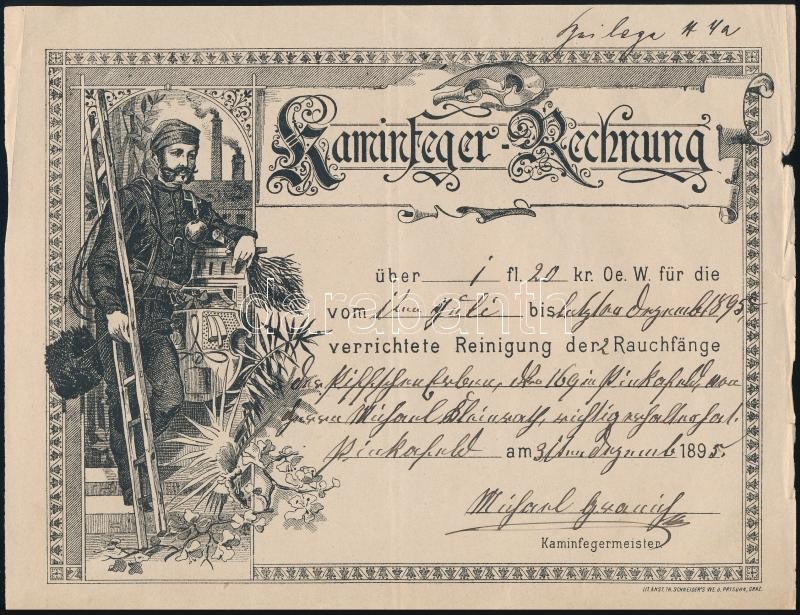 Beilage # 4a
Kaminfeger-Rechnung
über 1 fl. 20 kr. Oe. W. für die
vom 1ten Juli bis letzten Dezemb 1895,
verrichtete Reinigung der 2 Rauchfänge
der Erben, No 169 in Pinkafeld, von
Herrn Michael richtig erhalten hat.
Pinkafeld am 31ten Dezemb 1895.
Michael
Kaminfegermeister
LIT. ANST. TH. SCHNEIDER'S WE. & PRTSUHN, GRAZ.
darabanth